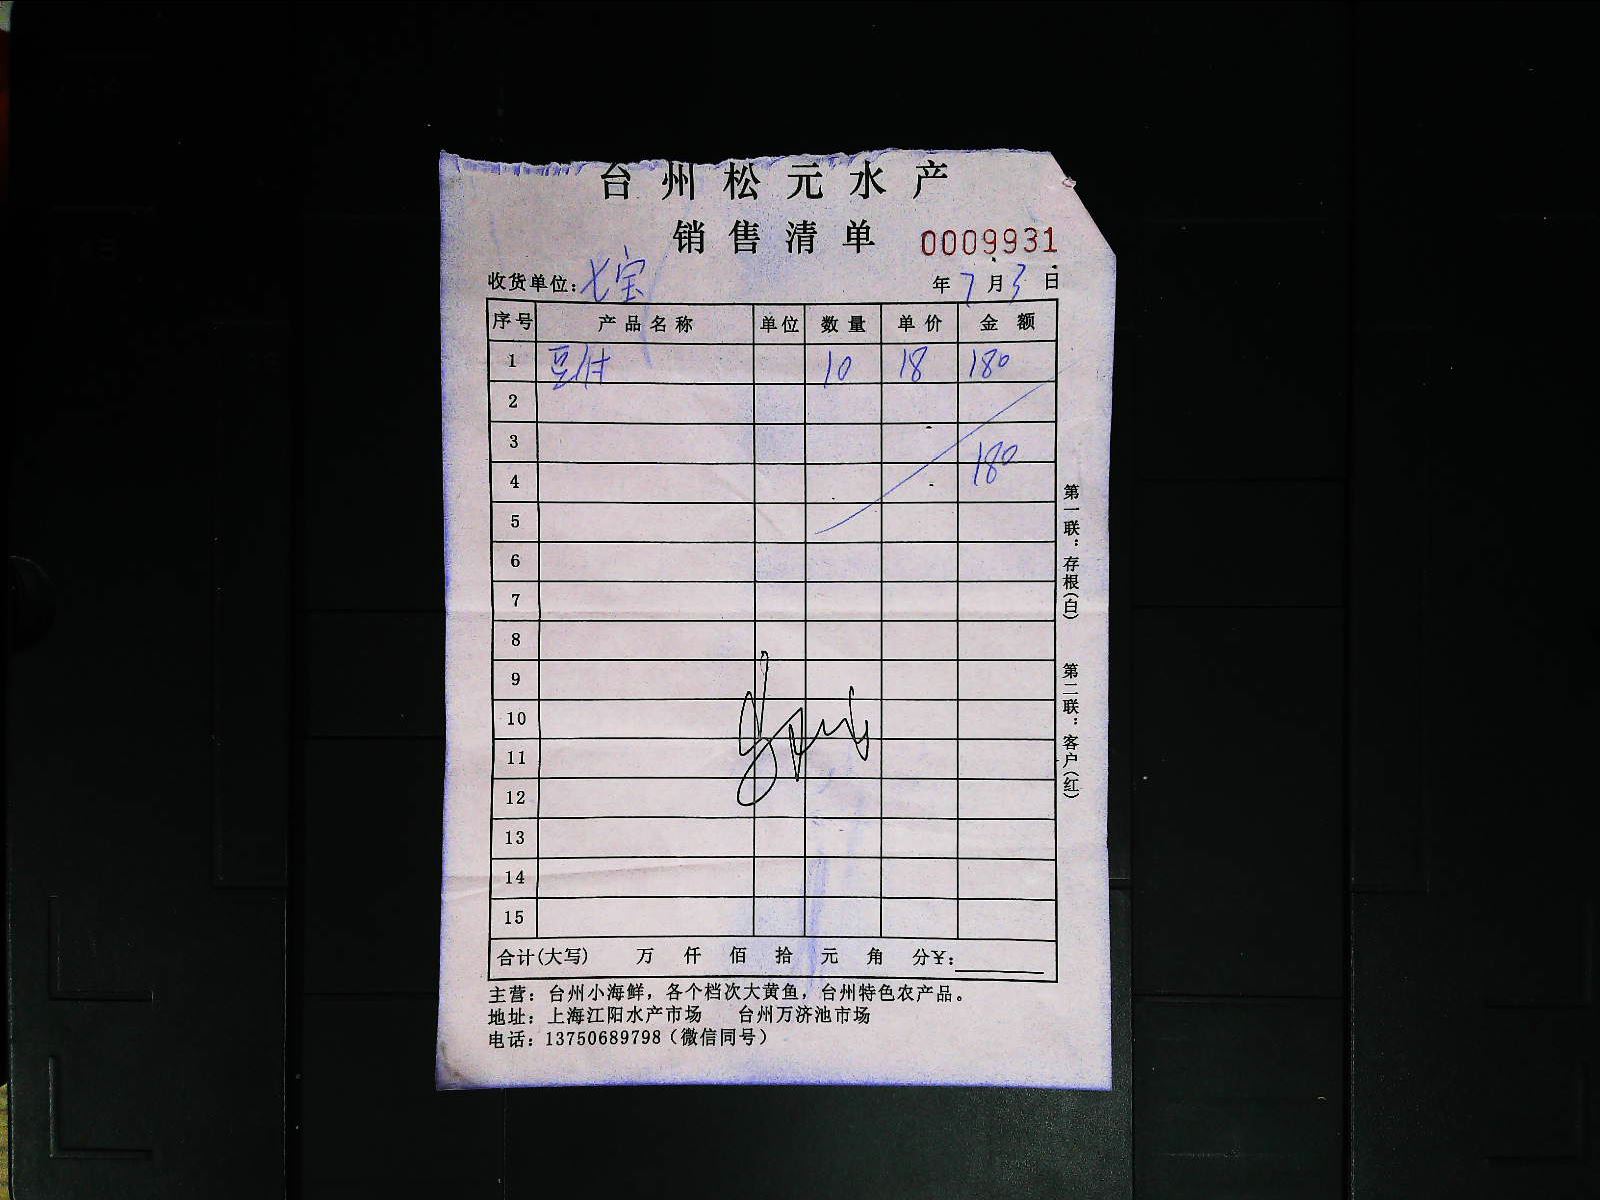 台州松元水产
销售清单 0009931
收货单位：七宝 年7月3日
序号 产品名称 单位 数量 单价 金额
1 豆付 10 18 180
2
3
180
4
5
6
7
8
9
10
11
12
13
14
15
合计(大写) 万 仟 佰 拾 元 角 分¥：
主营：台州小海鲜，各个档次大黄鱼，台州特色农产品。
地址：上海江阳水产市场 台州万济池市场
电话：13750689798（微信同号）
第一联：存根(白) 第二联：客户(红)